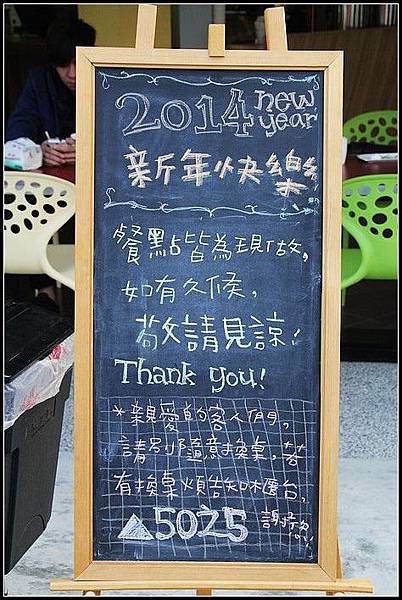 2014 new year
新年快樂
餐點皆為現做,
如有久候,
敬請見諒!
Thank you!
*親愛的客人們,
請別隨意換桌,若
有換桌煩告知櫃台,
5025 謝